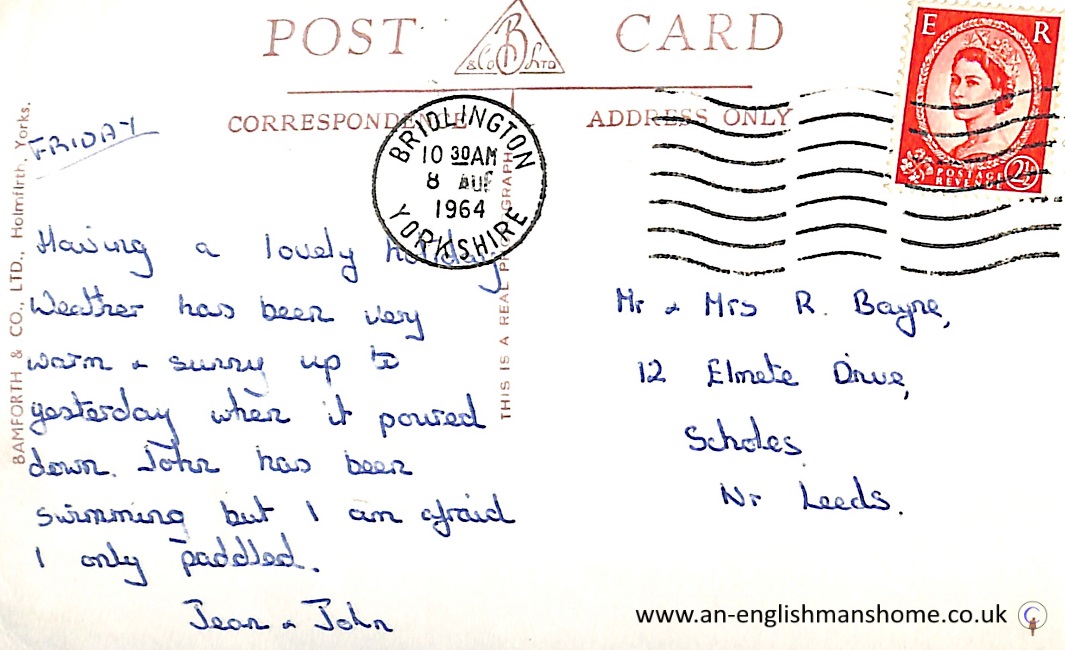 POST CARD
B
& Co LTD
CORRESPONDENCE
ADDRESS ONLY
E R
POSTAGE
REVENUE
2½
BRIDLINGTON
10 30AM
8 AUG
1964
YORKSHIRE
BAMFORTH & CO., LTD., Holmfirth, Yorks.
THIS IS A REAL PHOTOGRAPH
FRIDAY
Having a lovely holiday
Weather has been very
warm & sunny up to
yesterday when it poured
down. John has been
swimming but I am afraid
I only paddled.
Jean & John
Mr & Mrs R. Bayne,
12 Elmete Drive,
Scholes
Nr Leeds.
www.an-englishmanshome.co.uk